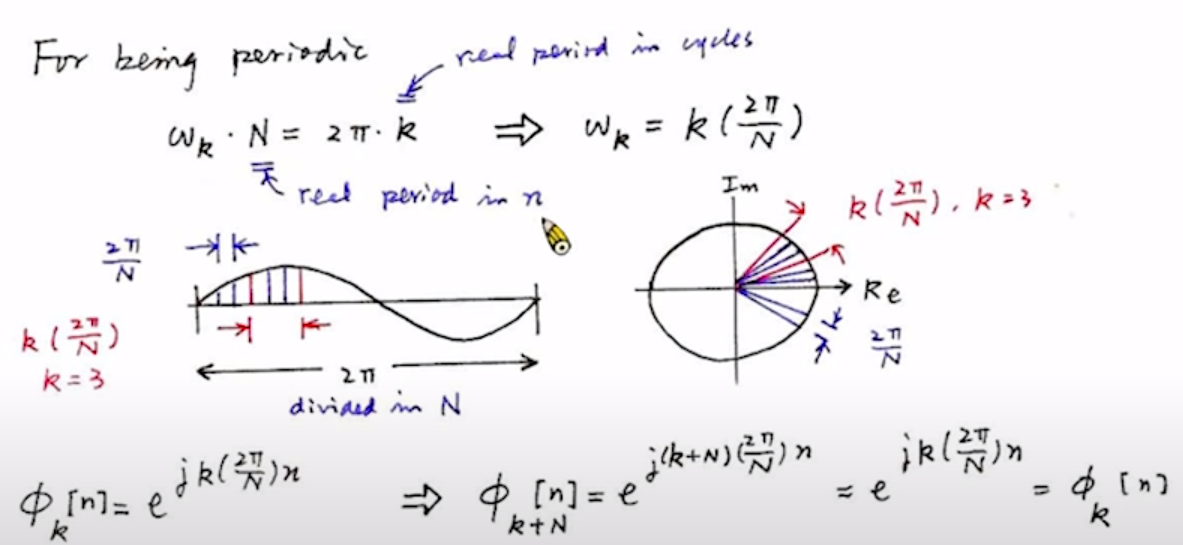 For being periodic
real period in cycles
ω_k · N = 2π · k ⇒ ω_k = k(2π/N)
real period in n
Im
k(2π/N), k=3
2π/N
Re
k(2π/N)
k=3
2π/N
2π
divided in N
ϕ_k[n] = e^{jk(2π/N)n} ⇒ ϕ_{k+N}[n] = e^{j(k+N)(2π/N)n} = e^{jk(2π/N)n} = ϕ_k[n]